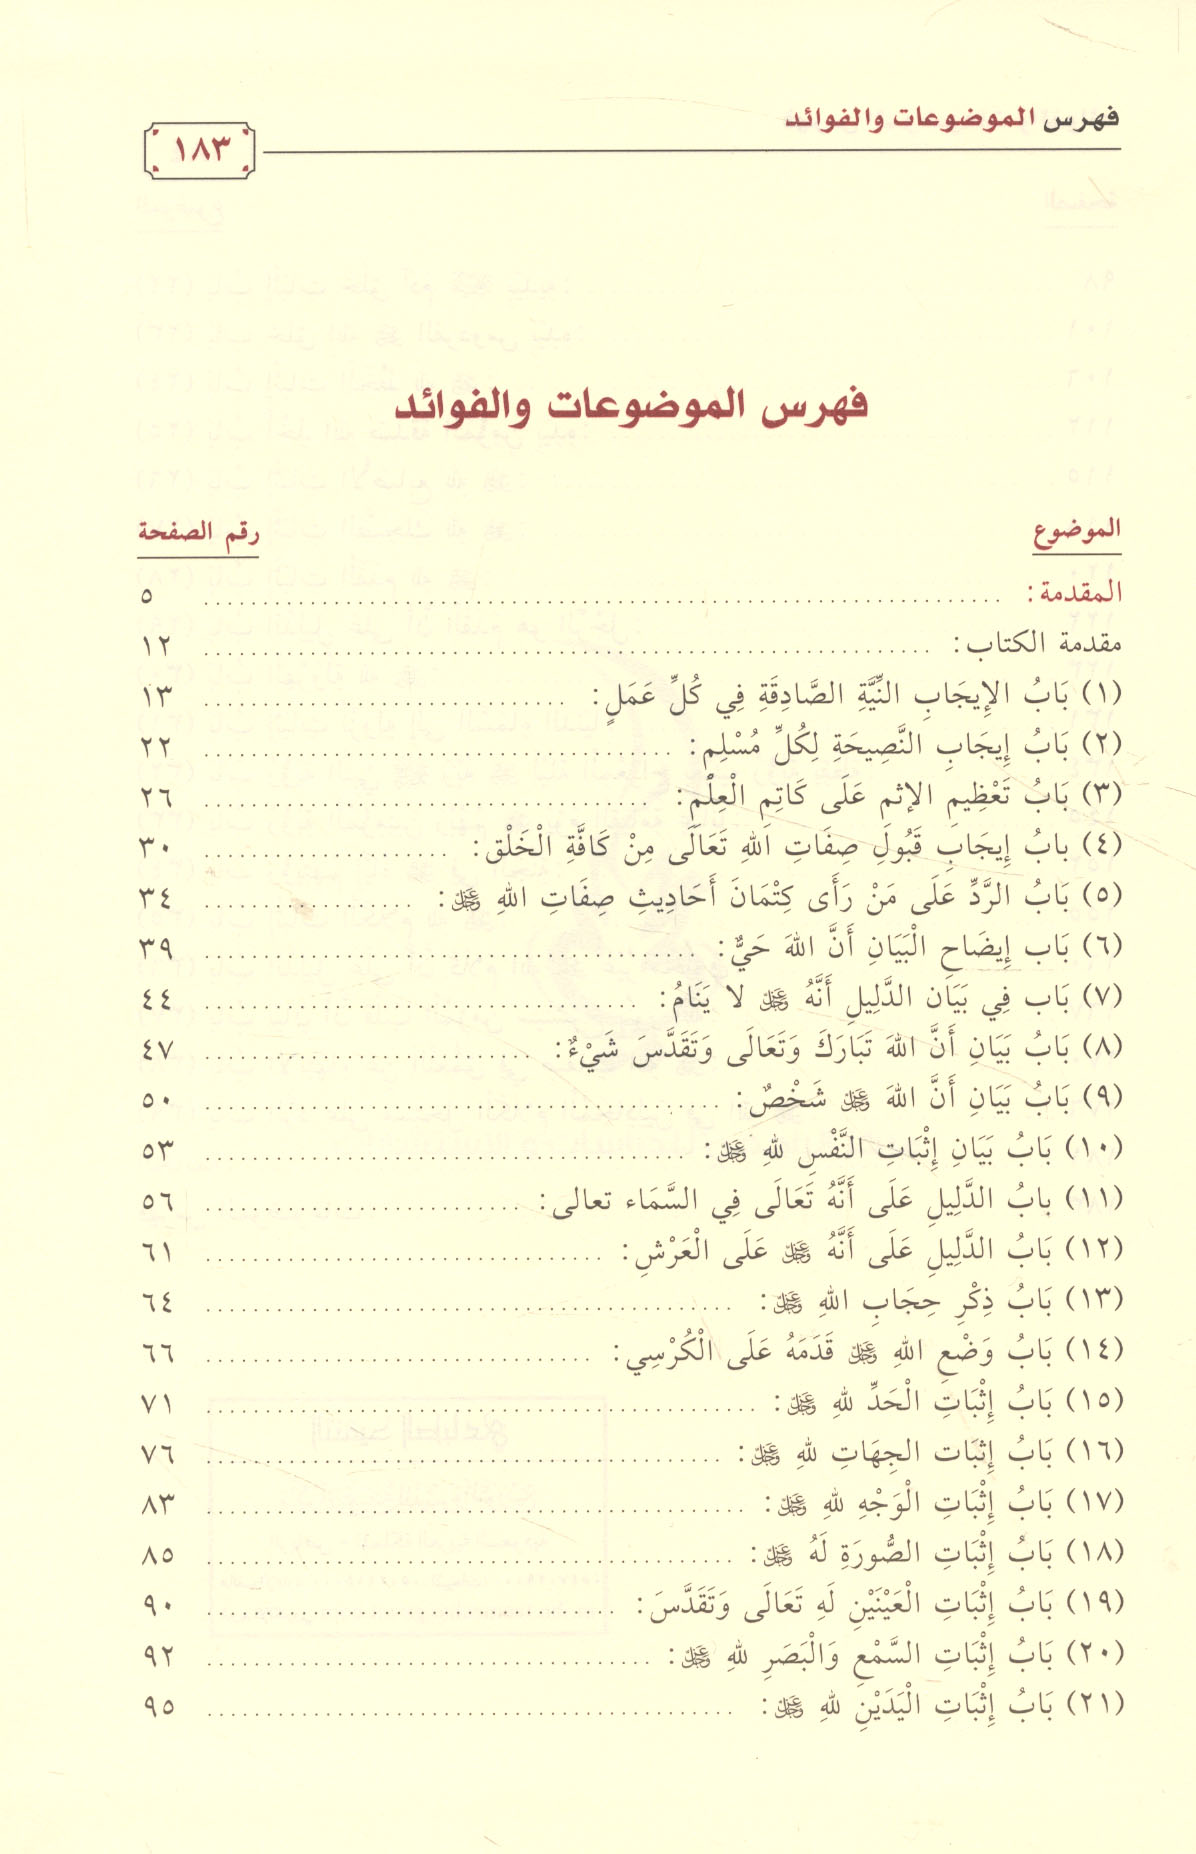 فهرس الموضوعات والفوائد
١٨٣
فهرس الموضوعات والفوائد
الموضوع رقم الصفحة
المقدمة: ٥
مقدمة الكتاب: ١٢
(١) بَابُ الإِيجَابِ النِّيَّةِ الصَّادِقَةِ فِي كُلِّ عَمَلٍ: ١٣
(٢) بَابُ إِيجَابِ النَّصِيحَةِ لِكُلِّ مُسْلِمٍ: ٢٢
(٣) بَابُ تَعْظِيمِ الإثمِ عَلَى كَاتِمِ الْعِلْمِ: ٢٦
(٤) بابُ إِيجَابِ قَبُولِ صِفَاتِ اللهِ تَعَالَى مِنْ كَافَّةِ الْخَلْقِ: ٣٠
(٥) بَابُ الرَّدِّ عَلَى مَنْ رَأَى كِتْمَانَ أَحَادِيثِ صِفَاتِ اللهِ عَزَّ وَجَلَّ: ٣٤
(٦) بَاب إِيضَاحِ الْبَيَانِ أَنَّ اللهَ حَيٌّ: ٣٩
(٧) بَاب فِي بَيَان الدَّلِيلِ أَنَّهُ عَزَّ وَجَلَّ لا يَنَامُ: ٤٤
(٨) بَابُ بَيَانِ أَنَّ اللهَ تَبَارَكَ وَتَعَالَى وَتَقَدَّسَ شَيْءٌ: ٤٧
(٩) بَابُ بَيَانِ أَنَّ اللهَ عَزَّ وَجَلَّ شَخْصٌ: ٥٠
(١٠) بَابُ بَيَانِ إِثْبَاتِ النَّفْسِ للهِ عَزَّ وَجَلَّ: ٥٣
(١١) بابُ الدَّلِيلِ عَلَى أَنَّهُ تَعَالَى فِي السَّمَاء تعالى: ٥٦
(١٢) بَابُ الدَّلِيلِ عَلَى أَنَّهُ عَزَّ وَجَلَّ عَلَى الْعَرْشِ: ٦١
(١٣) بَابُ ذِكْرِ حِجَابِ اللهِ عَزَّ وَجَلَّ: ٦٤
(١٤) بَابُ وَضْعِ اللهِ عَزَّ وَجَلَّ قَدَمَهُ عَلَى الْكُرْسِي: ٦٦
(١٥) بَابُ إِثْبَاتِ الْحَدِّ للهِ عَزَّ وَجَلَّ: ٧١
(١٦) بَابُ إِثبَات الجِهَاتِ للهِ عَزَّ وَجَلَّ: ٧٦
(١٧) بَابُ إِثْبَاتِ الْوَجْهِ للهِ عَزَّ وَجَلَّ: ٨٣
(١٨) بَابُ إِثْبَاتِ الصُّورَةِ لَهُ عَزَّ وَجَلَّ: ٨٥
(١٩) بَابُ إِثْبَاتِ الْعَيْنَيْنِ لَهِ تَعَالَى وَتَقَدَّسَ: ٩٠
(٢٠) بَابُ إِثْبَاتِ السَّمْعِ وَالْبَصَرِ للهِ عَزَّ وَجَلَّ: ٩٢
(٢١) بَابُ إِثْبَاتِ الْيَدَيْنِ للهِ عَزَّ وَجَلَّ: ٩٥